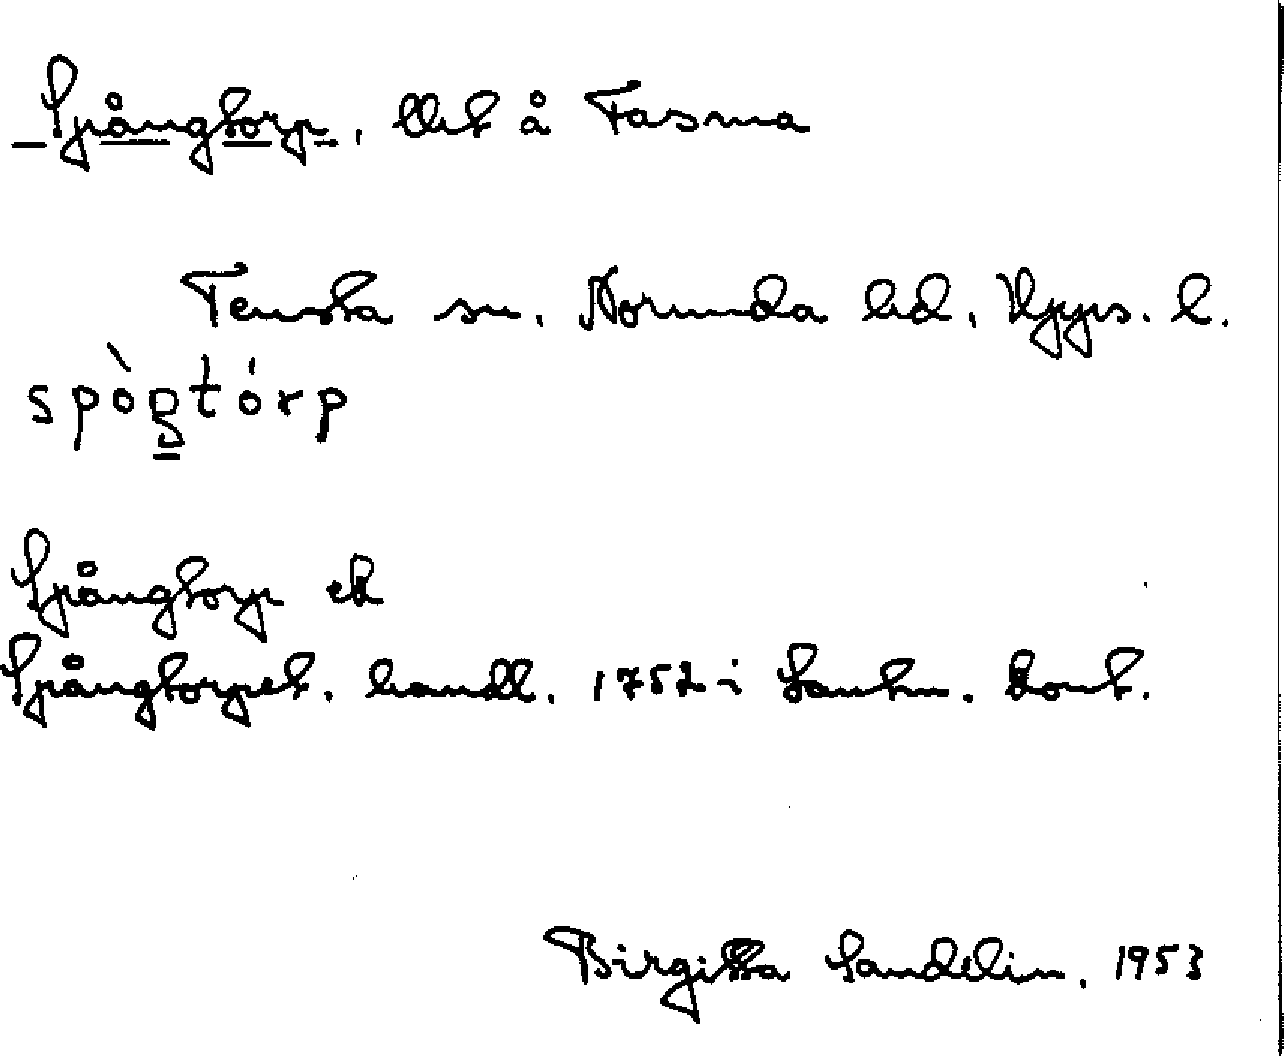 Spångtorp, lht å Fasma
Tensta sn. Norunda hd, Upps. l.
Spångtorp el
Spångtorpet. handl. 1752 i Lantm. kont.
Birgitta Sandelin. 1953